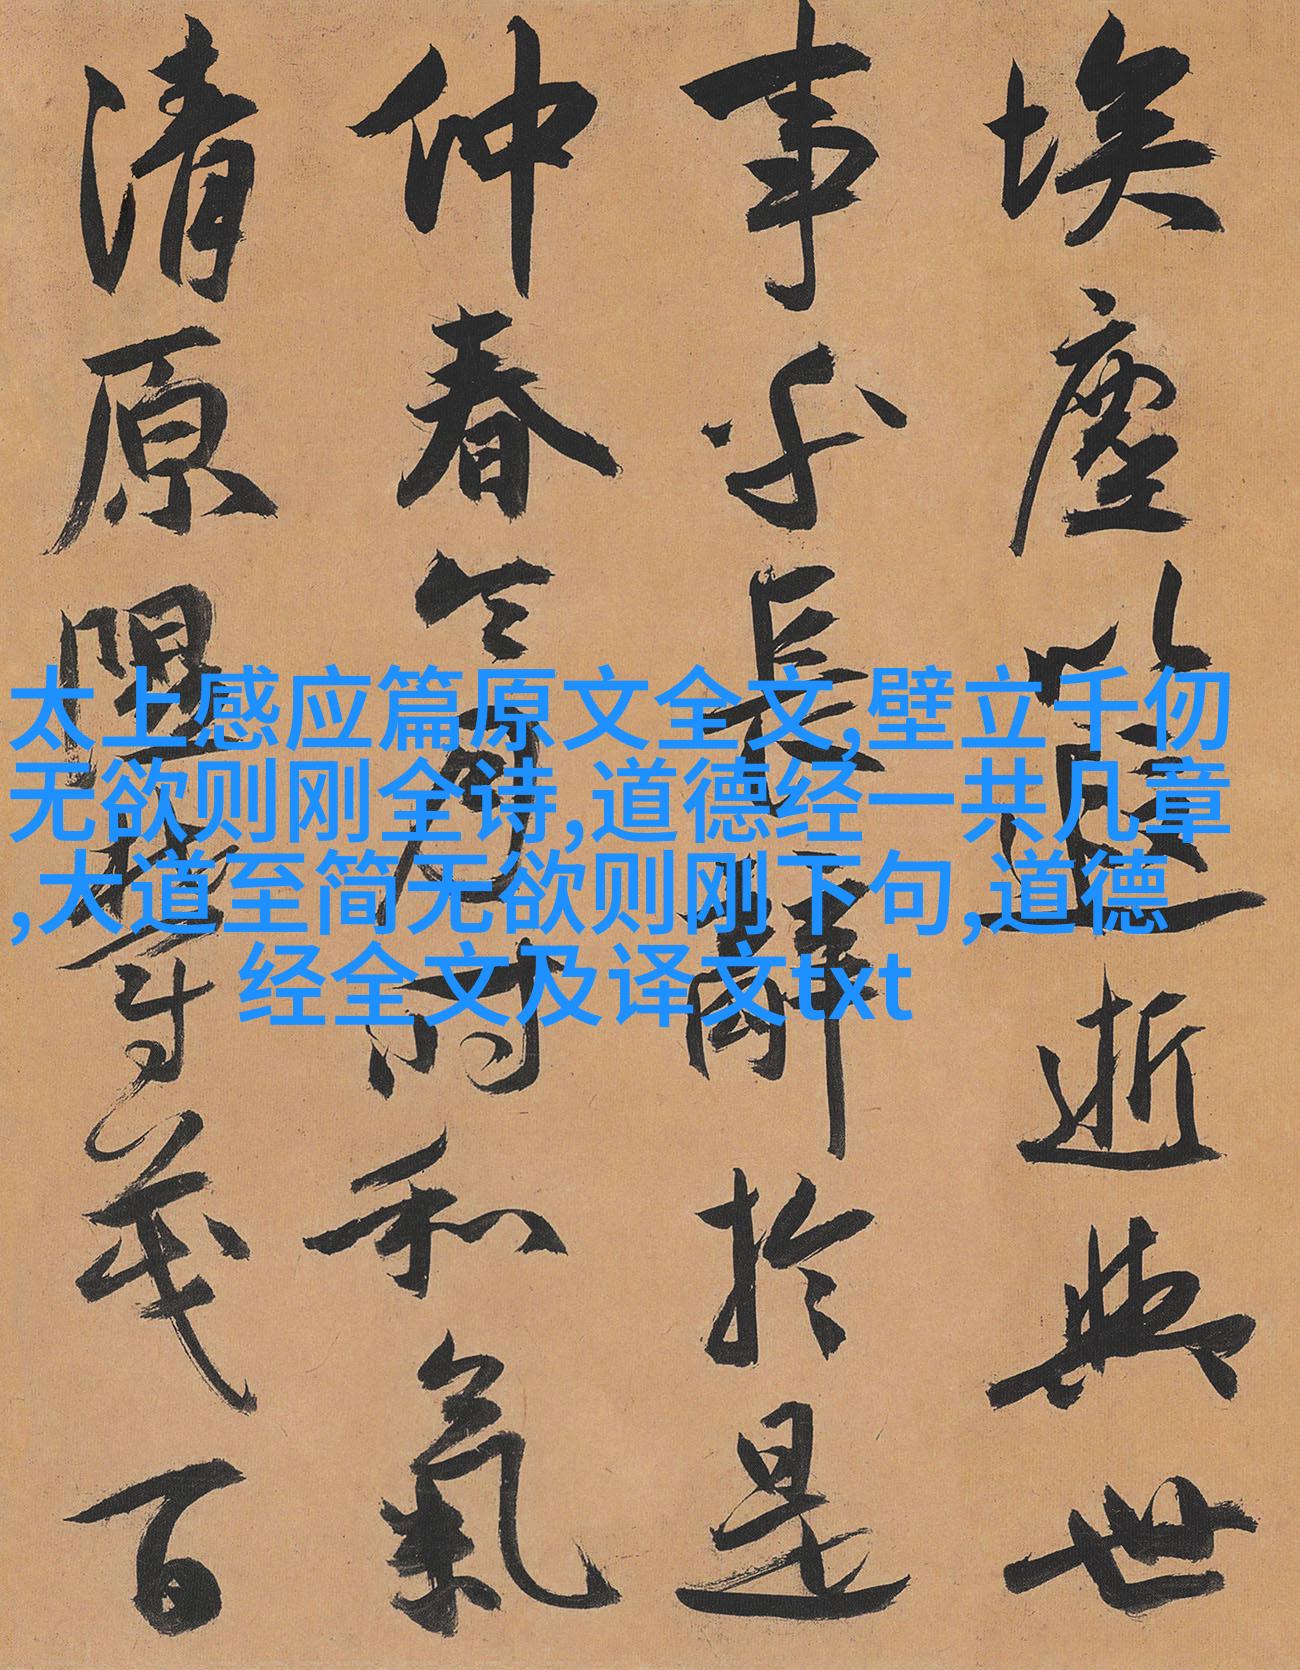 埃塵以遐逝與世
事乎長辭於是
仲春令月時和氣
清原隰鬱茂百
太上感应篇原文全文,壁立千仞
无欲则刚全诗,道德经一共几章
,大道至简无欲则刚下句,道德
经全文及译文txt